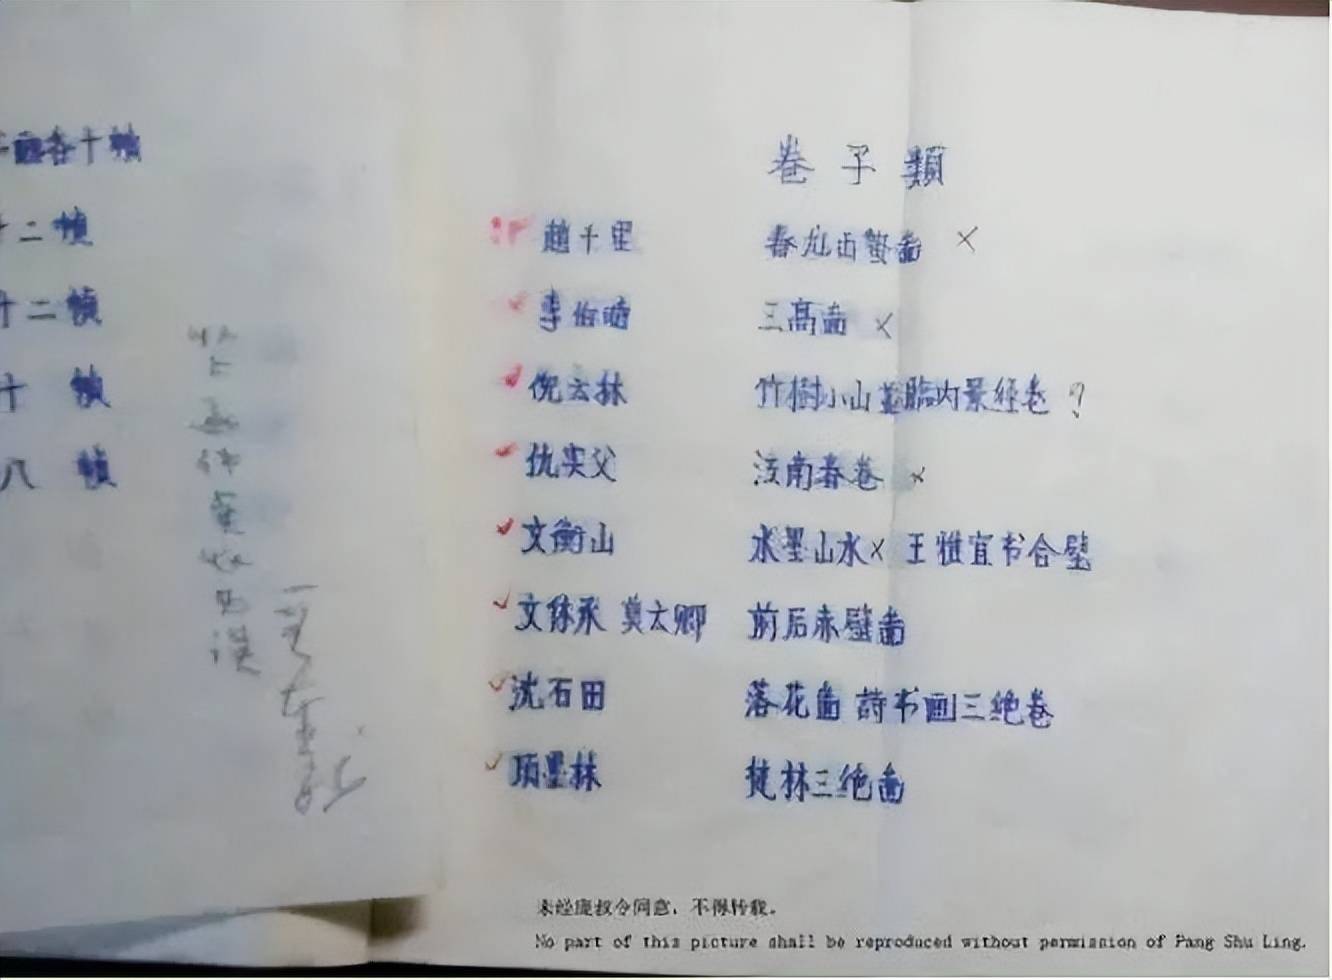 十幀
十二幀
十二幀
十 幀
八 幀
卷子類
趙千里 春龙起蟄啚 ×
李伯時 三高啚 ×
倪云林 竹樹小山 臨内景经卷 ?
仇实父 江南春卷 ×
文衡山 水墨山水× 王雅宜书合壁
文休承 莫云卿 前后赤壁啚
沈石田 落花啚 詩书画三绝卷
项墨林 林三绝啚
未经庞叔令同意，不得转载。
No part of this picture shall be reproduced without permission of Pang Shu Ling.